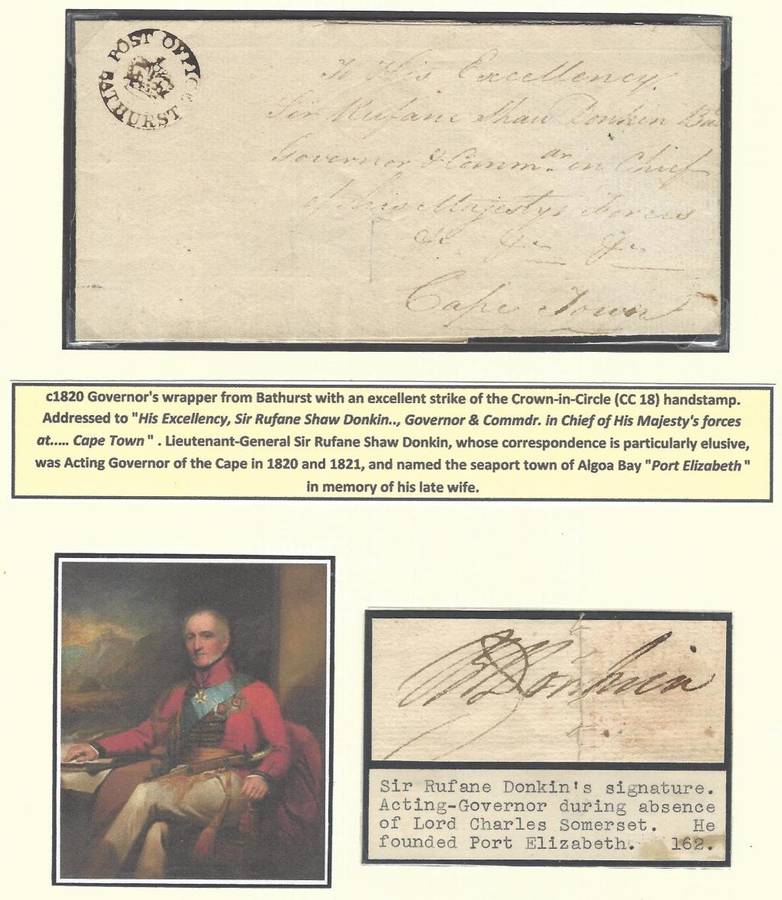 POST OFFICE
BATHURST
To His Excellency
Sir Rufane Shaw Donkin
Governor & Commar. in Chief
of his Majestys Forces
&c &c &c
Cape Town
c1820 Governor's wrapper from Bathurst with an excellent strike of the Crown-in-Circle (CC 18) handstamp.
Addressed to "His Excellency, Sir Rufane Shaw Donkin.., Governor & Commdr. in Chief of His Majesty's forces
at..... Cape Town" . Lieutenant-General Sir Rufane Shaw Donkin, whose correspondence is particularly elusive,
was Acting Governor of the Cape in 1820 and 1821, and named the seaport town of Algoa Bay "Port Elizabeth"
in memory of his late wife.
Donkin
Sir Rufane Donkin's signature.
Acting-Governor during absence
of Lord Charles Somerset. He
founded Port Elizabeth. 162.